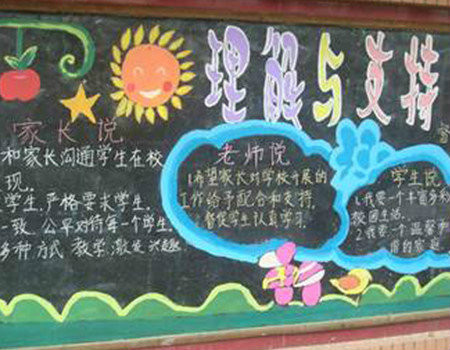 理解与支持
家长说
和家长沟通学生在校
现.
学生.严格要求学生.
一致.公平对待每一个学生.
多种方式教学,激发兴趣
老师说
1.希望家长对学校开展的
工作给予配合和支持.
2.督促学生认真学习.
学生说
1.我要一个丰富多
校园生活.
2.我要一个温馨和
谐的家庭